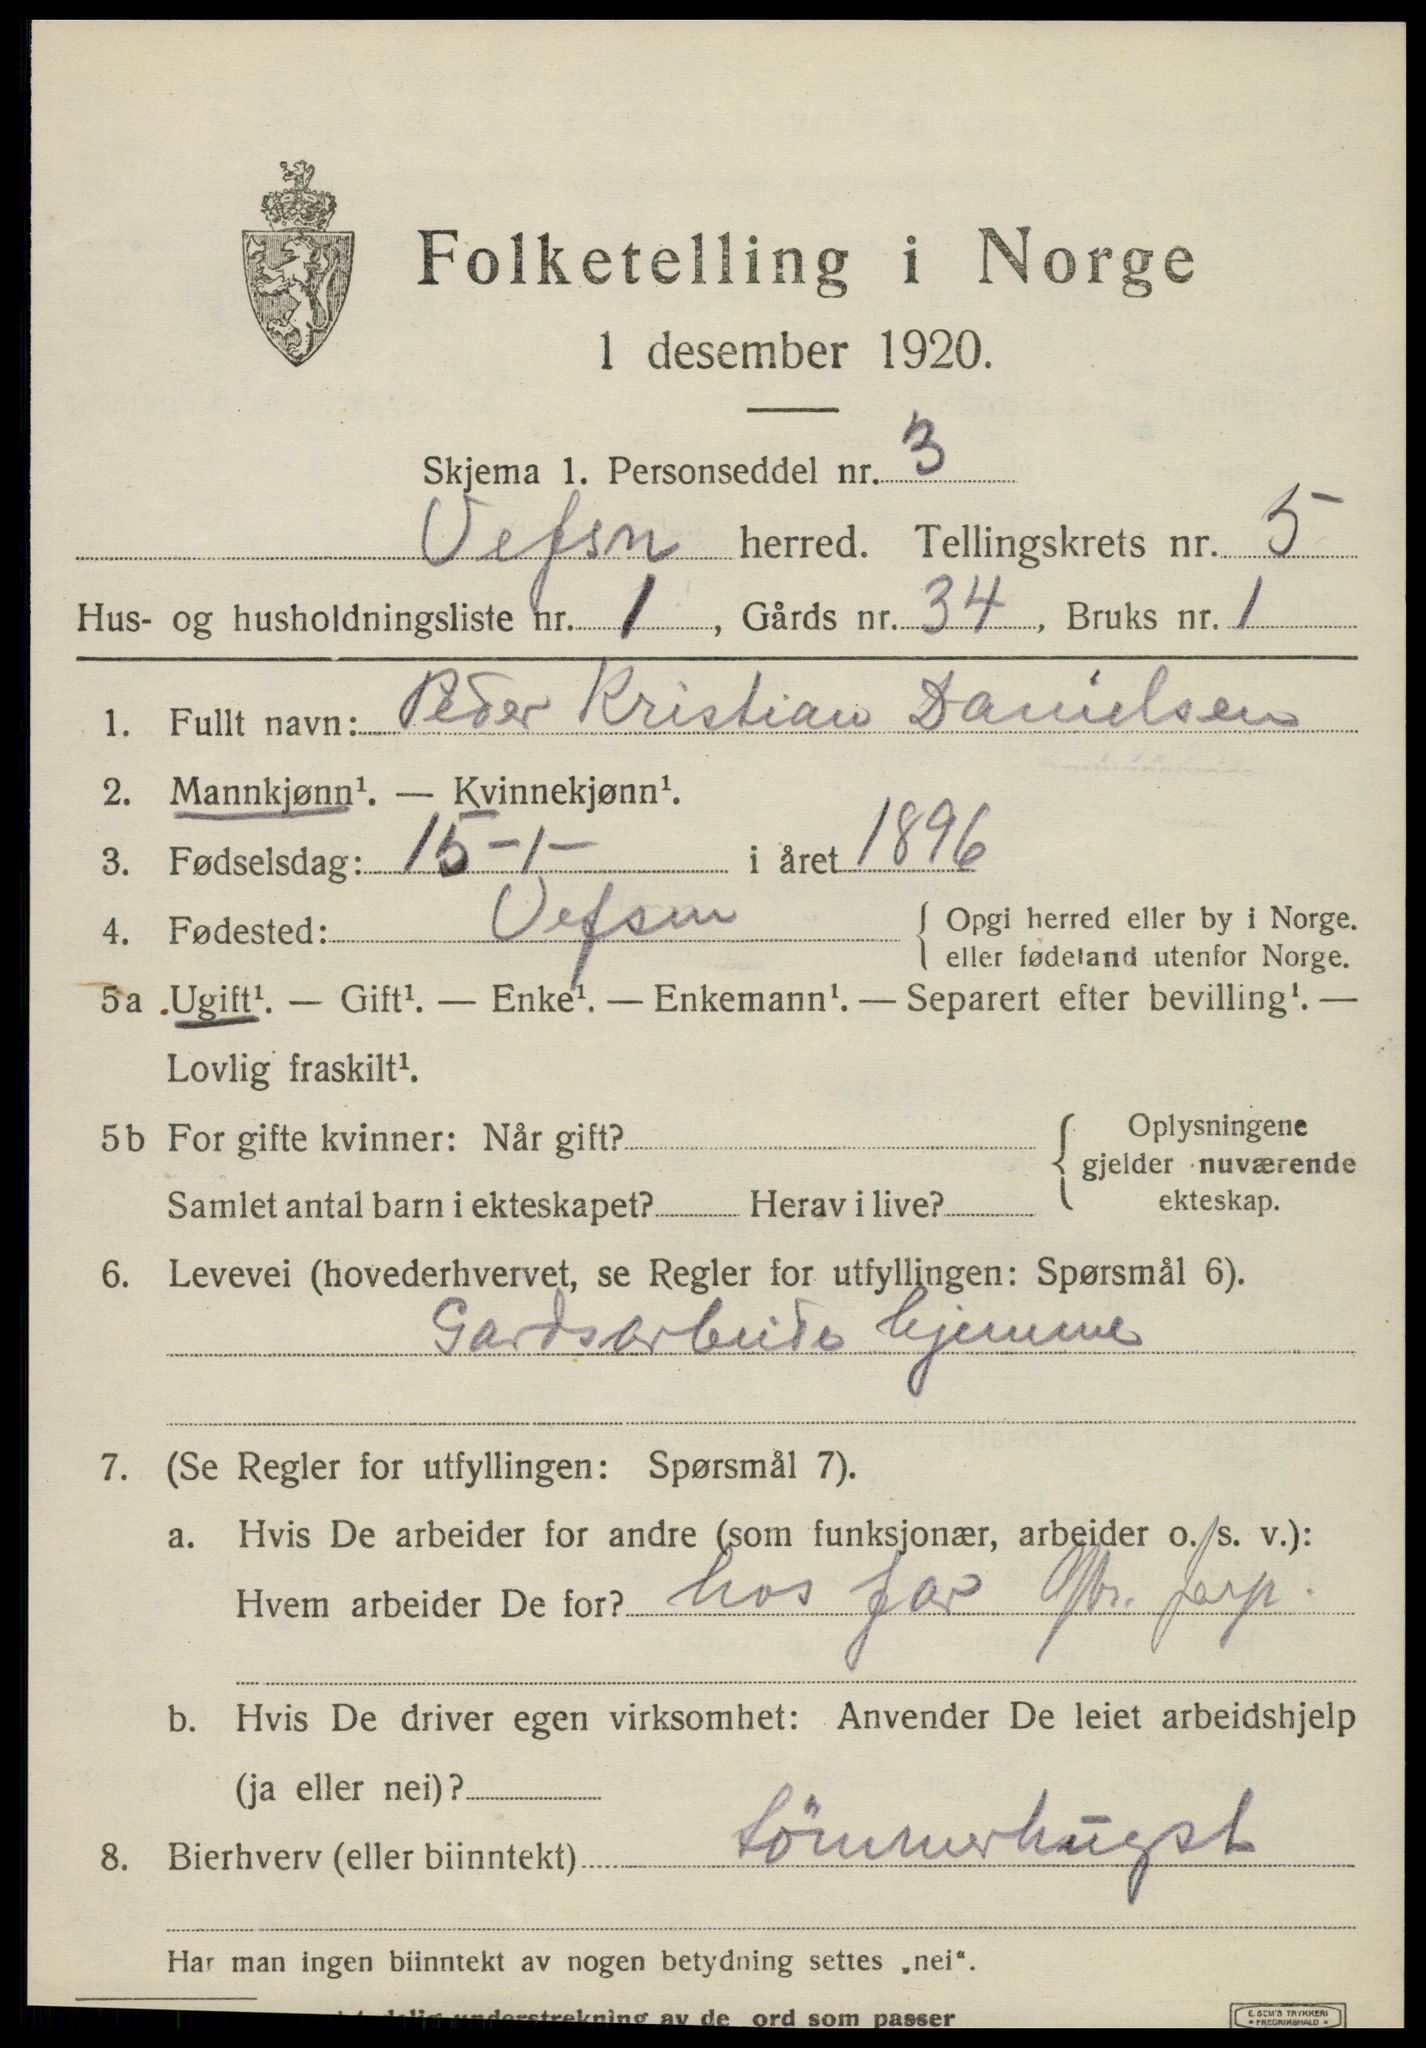 Folketelling i Norge
1 desember 1920.
Skjema 1. Personseddel nr. 3
Vefsn herred. Tellingskrets nr. 5
Hus- og husholdningsliste nr. 1, Gårds nr. 34, Bruks nr. 1
1. Fullt navn: Peder Kristian Danielsen
2. Mannkjønn¹. — Kvinnekjønn¹.
3. Fødselsdag: 15-1- i året 1896
4. Fødested: Vefsn { Opgi herred eller by i Norge.
eller fødeland utenfor Norge.
5a Ugift¹. — Gift¹. — Enke¹. — Enkemann¹. — Separert efter bevilling¹. —
Lovlig fraskilt¹.
5b For gifte kvinner: Når gift? { Oplysningene
gjelder nuværende
Samlet antal barn i ekteskapet? Herav i live? ekteskap.
6. Levevei (hovederhvervet, se Regler for utfyllingen: Spørsmål 6).
Gardsarbeide hjemme
7. (Se Regler for utfyllingen: Spørsmål 7).
a. Hvis De arbeider for andre (som funksjonær, arbeider o. s. v.):
Hvem arbeider De for? hos far
b. Hvis De driver egen virksomhet: Anvender De leiet arbeidshjelp
(ja eller nei)?
8. Bierhverv (eller biinntekt) tömmerhugst
Har man ingen biinntekt av nogen betydning settes „nei“.
understrekning av de ord som passer
E. SEM'S TRYKKERI
FREDRIKSHALD